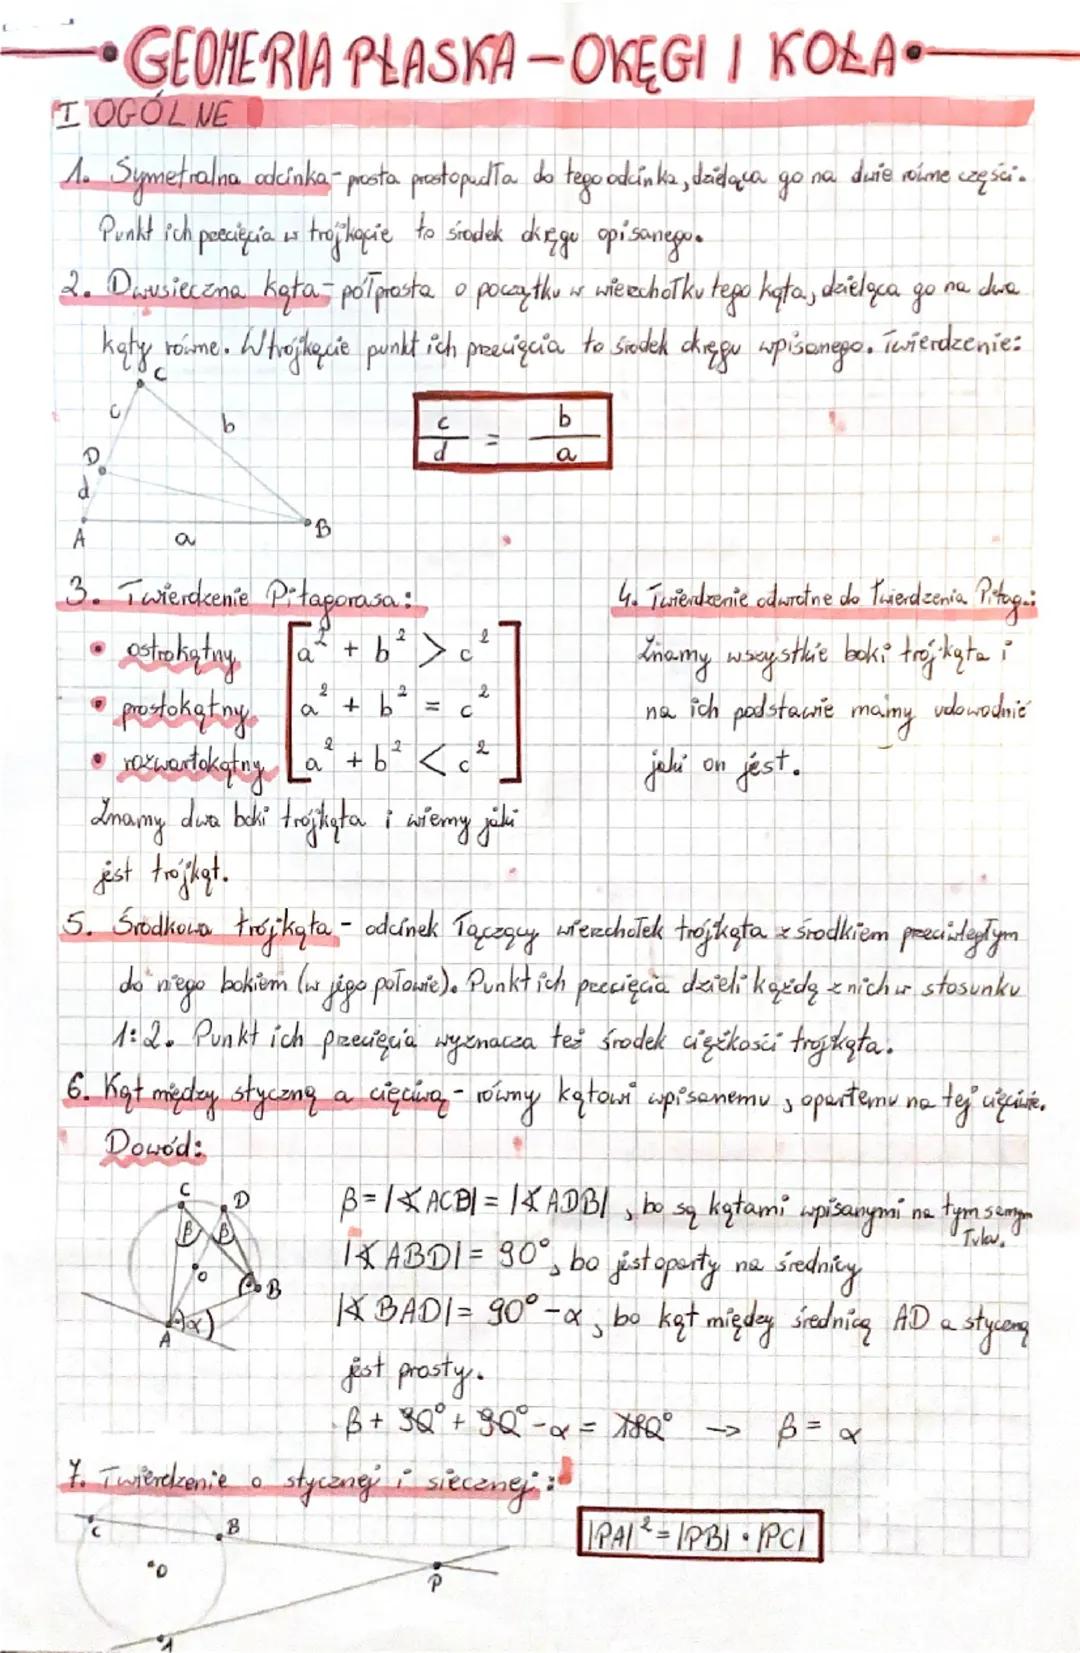 GEOMERIA PŁASKA - OKĘGI I KOŁA
I OGÓLNE
1. Symetralna odcinka - prosta prostopadła do tego odcinka, dzieląca go na dwie równe części.
Punkt ich przecięcia w trójkącie to środek okręgu opisanego.
2. Dwusieczna kąta - półprosta o początku w wierzchołku tego kąta, dzieląca go na dwa
kąty równe. W trójkącie punkt ich przecięcia to środek okręgu wpisanego. Twierdzenie:
C
c
b
D
d
A
a
B
c/d = b/a
3. Twierdzenie Pitagorasa:
• ostrokątny a² + b² > c²
• prostokątny a² + b² = c²
• rozwartokątny a² + b² < c²
Znamy dwa boki trójkąta i wiemy jaki
jest trójkąt.
4. Twierdzenie odwrotne do Twierdzenia Pitag.:
Znamy wszystkie boki trójkąta i
na ich podstawie mamy udowodnić
jaki on jest.
5. Środkowa trójkąta - odcinek łączący wierzchołek trójkąta z środkiem przeciwległym
do niego bokiem (w jego połowie). Punkt ich przecięcia dzieli każdą z nich w stosunku
1:2. Punkt ich przecięcia wyznacza też środek ciężkości trójkąta.
6. Kąt między styczną a cięciwą - równy kątowi wpisanemu, opartemu na tej cięciwie.
Dowód:
C
D
β
β
O
B
A
α
β = |∢ACB| = |∢ADB|, bo są kątami wpisanymi na tym samym
łuku.
|∢ABD| = 90°, bo jest oparty na średnicy
|∢BAD| = 90° - α, bo kąt między średnicą AD a styczną
jest prosty.
β + 90° + 90° - α = 180° → β = α
7. Twierdzenie o stycznej i siecznej:
C
B
O
P
A
|PA|² = |PB| · |PC|